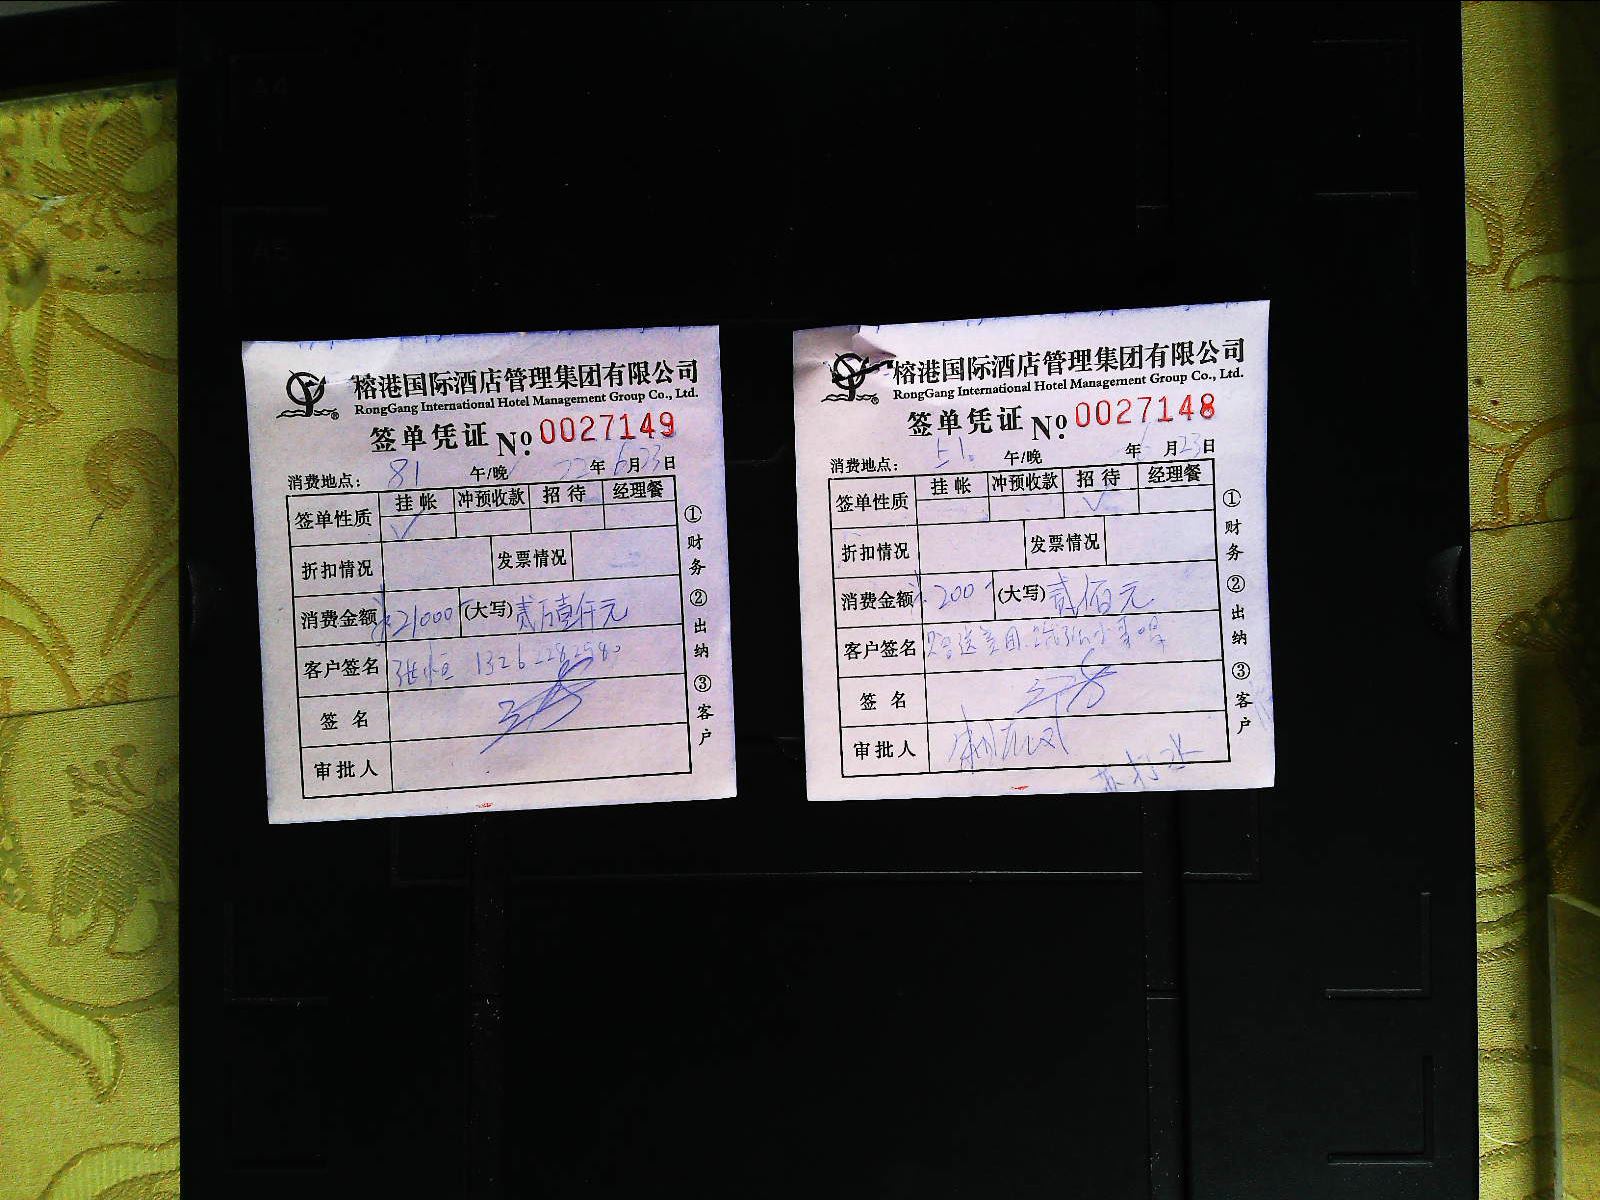 榕港国际酒店管理集团有限公司
RongGang International Hotel Management Group Co., Ltd.
签单凭证 No. 0027149
消费地点: 81 午/晚 22年6月23日
签单性质 挂帐 冲预收款 招待 经理餐
✓
折扣情况 发票情况
消费金额 21000 (大写) 贰万壹仟元
客户签名 张恒 13262282980
签名
审批人
①财务 ②出纳 ③客户
榕港国际酒店管理集团有限公司
RongGang International Hotel Management Group Co., Ltd.
签单凭证 No. 0027148
消费地点: 51. 午/晚 年6月23日
签单性质 挂帐 冲预收款 招待 经理餐
✓
折扣情况 发票情况
消费金额 200 (大写) 贰佰元
客户签名 赠送美团
签名
审批人
苏打水
①财务 ②出纳 ③客户